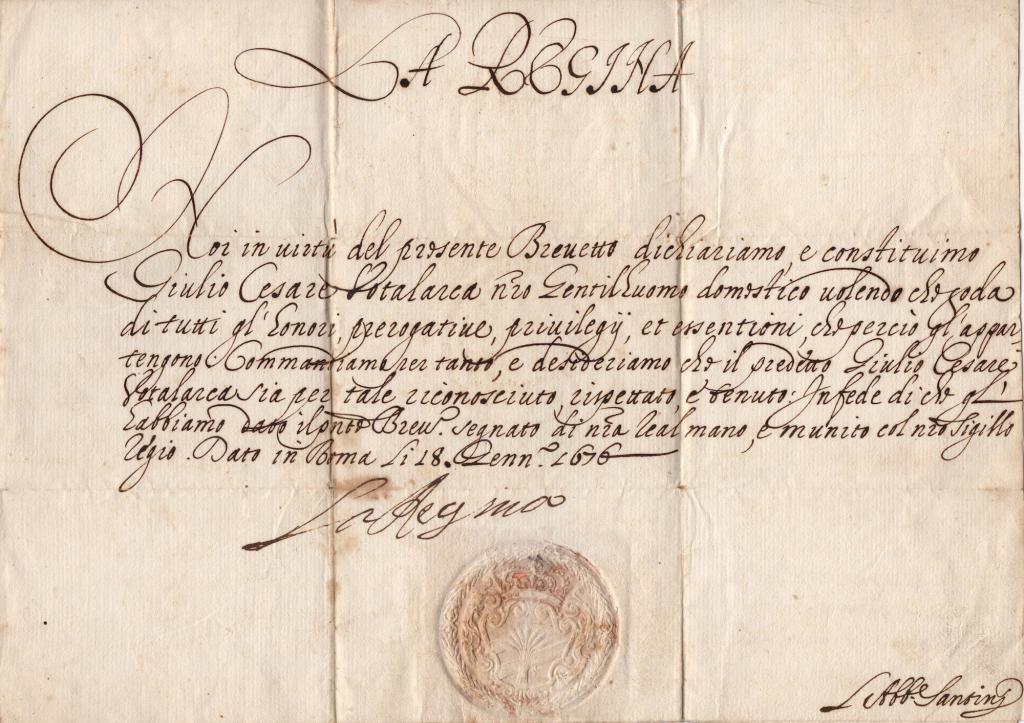 LA REGINA
Noi in uirtù del presente Breuetto dichiariamo, e constituimo
Giulio Cesare Votalarca nr̄o Gentilhuomo domestico uolendo che goda
di tutti gl' honori, prerogatiue, priuilegij, et essentioni, che perciò gl' appar-
tengono Commandiamo per tanto, e desideriamo che il predetto Giulio Cesare
Votalarca sia per tale riconosciuto, rispettato, e tenuto: In fede di che gl'
habbiamo dato il pn̄te Breu.º segnato di nr̄a Real mano, e munito col nr̄o Sigillo
Regio. Dato in Roma li 18. Genn.º 1676
La Regina
L'Abb.e Santini